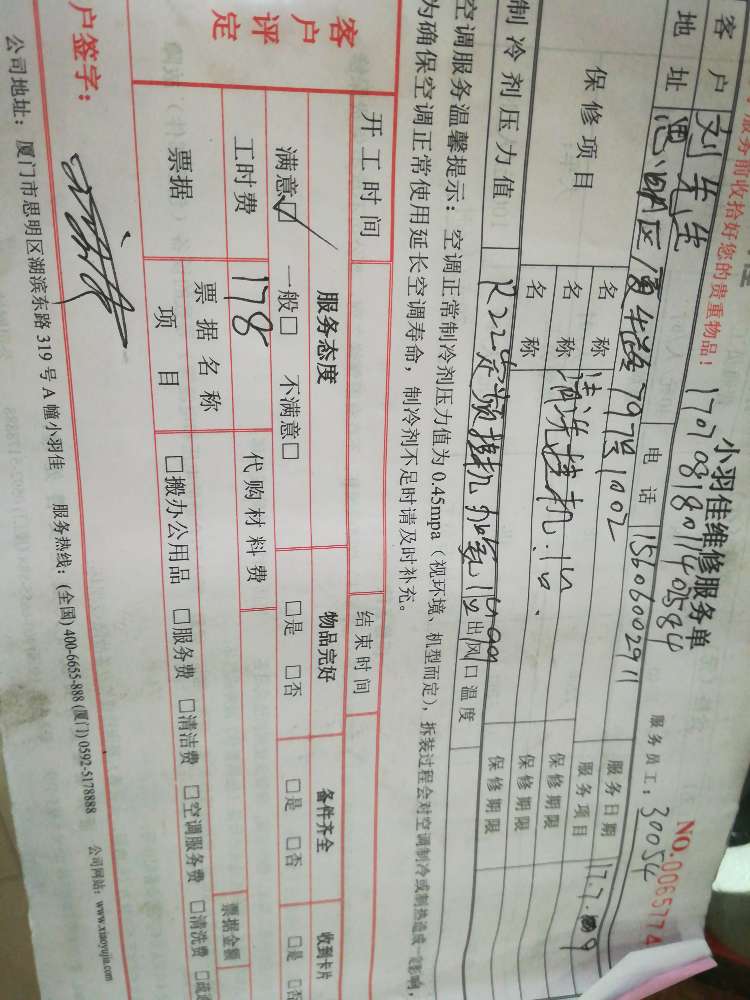 服务前收拾好您的贵重物品!
小羽佳维修服务单
NO.0065774
1707081801140584
服务员工: 30054
客户 刘先生 电话 15606002911 服务日期 17.7.9
地址 思明区厦禾路797号1002 服务项目
保修项目 名称 保修期限
名称 清洗挂机.1台. 保修期限
名称 R22定频挂机加氨1台 保修期限
制冷剂压力值 出风口温度
空调服务温馨提示: 空调正常制冷剂压力值为0.45mpa(视环境、机型而定), 拆装过程会对空调制冷或制热造成一定影响,
为确保空调正常使用延长空调寿命, 制冷剂不足时请及时补充。
开工时间 结束时间
客户评定
服务态度 物品完好 备件齐全 收到卡片
满意☑ 一般□ 不满意□ □是 □否 □是 □否 □是 □否
工时费 178 代购材料费
票据 票据名称 票据金额
项目 □搬办公用品 □服务费 □清洁费 □空调服务费 □清洗费
户签字:
公司地址: 厦门市思明区湖滨东路319号A幢小羽佳 服务热线: (全国) 400-6655-888 (厦门) 0592-5178888 公司网站: www.xiaoyujia.com